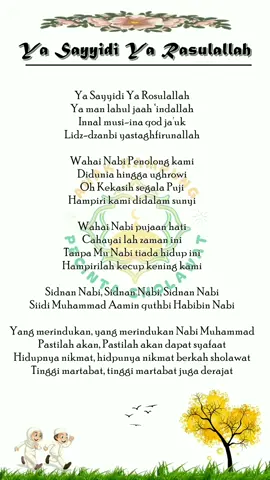 Ya Sayyidi Ya Rasulallah
Ya Sayyidi Ya Rosulallah
Ya man lahul jaah 'indallah
Innal musi-ina qod ja'uk
Lidz-dzanbi yastaghfirunallah
Wahai Nabi Penolong kami
Didunia hingga ughrowi
Oh Kekasih segala Puji
Hampiri kami didalam sunyi
Wahai Nabi pujaan hati
Cahayai lah zaman ini
Tanpa Mu Nabi tiada hidup ini
Hampirilah kecup kening kami
Sidnan Nabi, Sidnan Nabi, Sidnan Nabi
Siidi Muhammad Aamin quthbi Habibin Nabi
Yang merindukan, yang merindukan Nabi Muhammad
Pastilah akan, Pastilah akan dapat syafaat
Hidupnya nikmat, hidpunya nikmat berkah sholawat
Tinggi martabat, tinggi martabat juga derajat